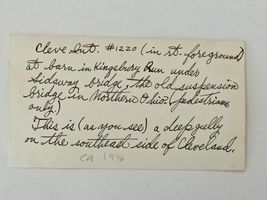 Cleve Int. #1220 (in rt. foreground
at barn in Kingsbury Run under
Sidaway bridge, the old suspension
bridge in Northern Ohio. (pedestrians
only)
This is (as you see) a deep gully
on the southeast side of Cleveland.
ca 1936